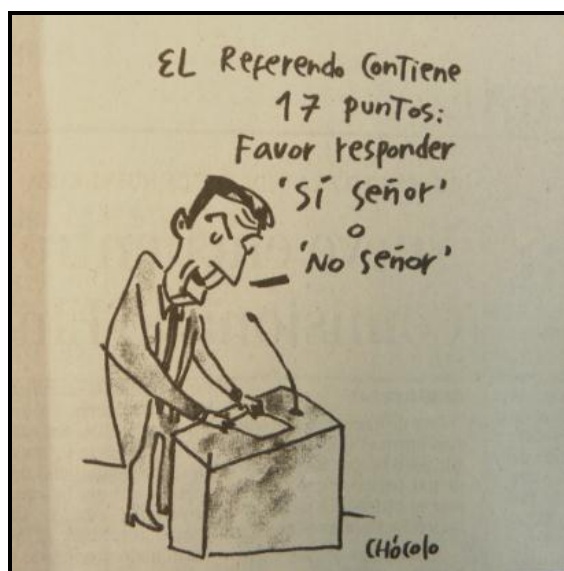 EL Referendo Contiene
17 punTos:
Favor responder
'Sí señor'
o
'No señor'
CHócolo